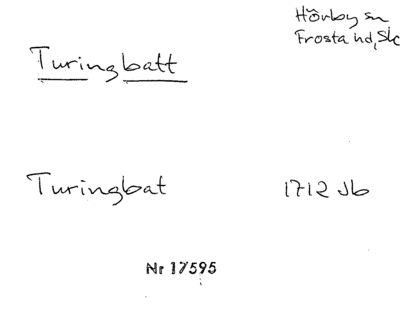 Hörby sn
Frosta hd, Sk
Turingbatt
Turingbat 1712 Jb
Nr 17595